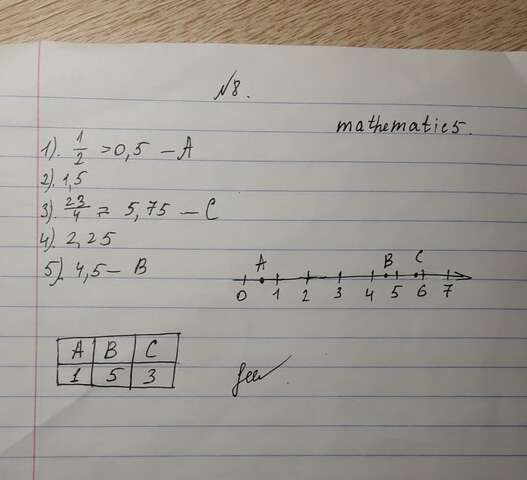 №8.
mathematic5.
1). 1/2 = 0,5 – A
2). 1,5
3). 23/4 = 5,75 – C
4). 2,25
5). 4,5 – B
A B C
0 1 2 3 4 5 6 7
A B C
1 5 3